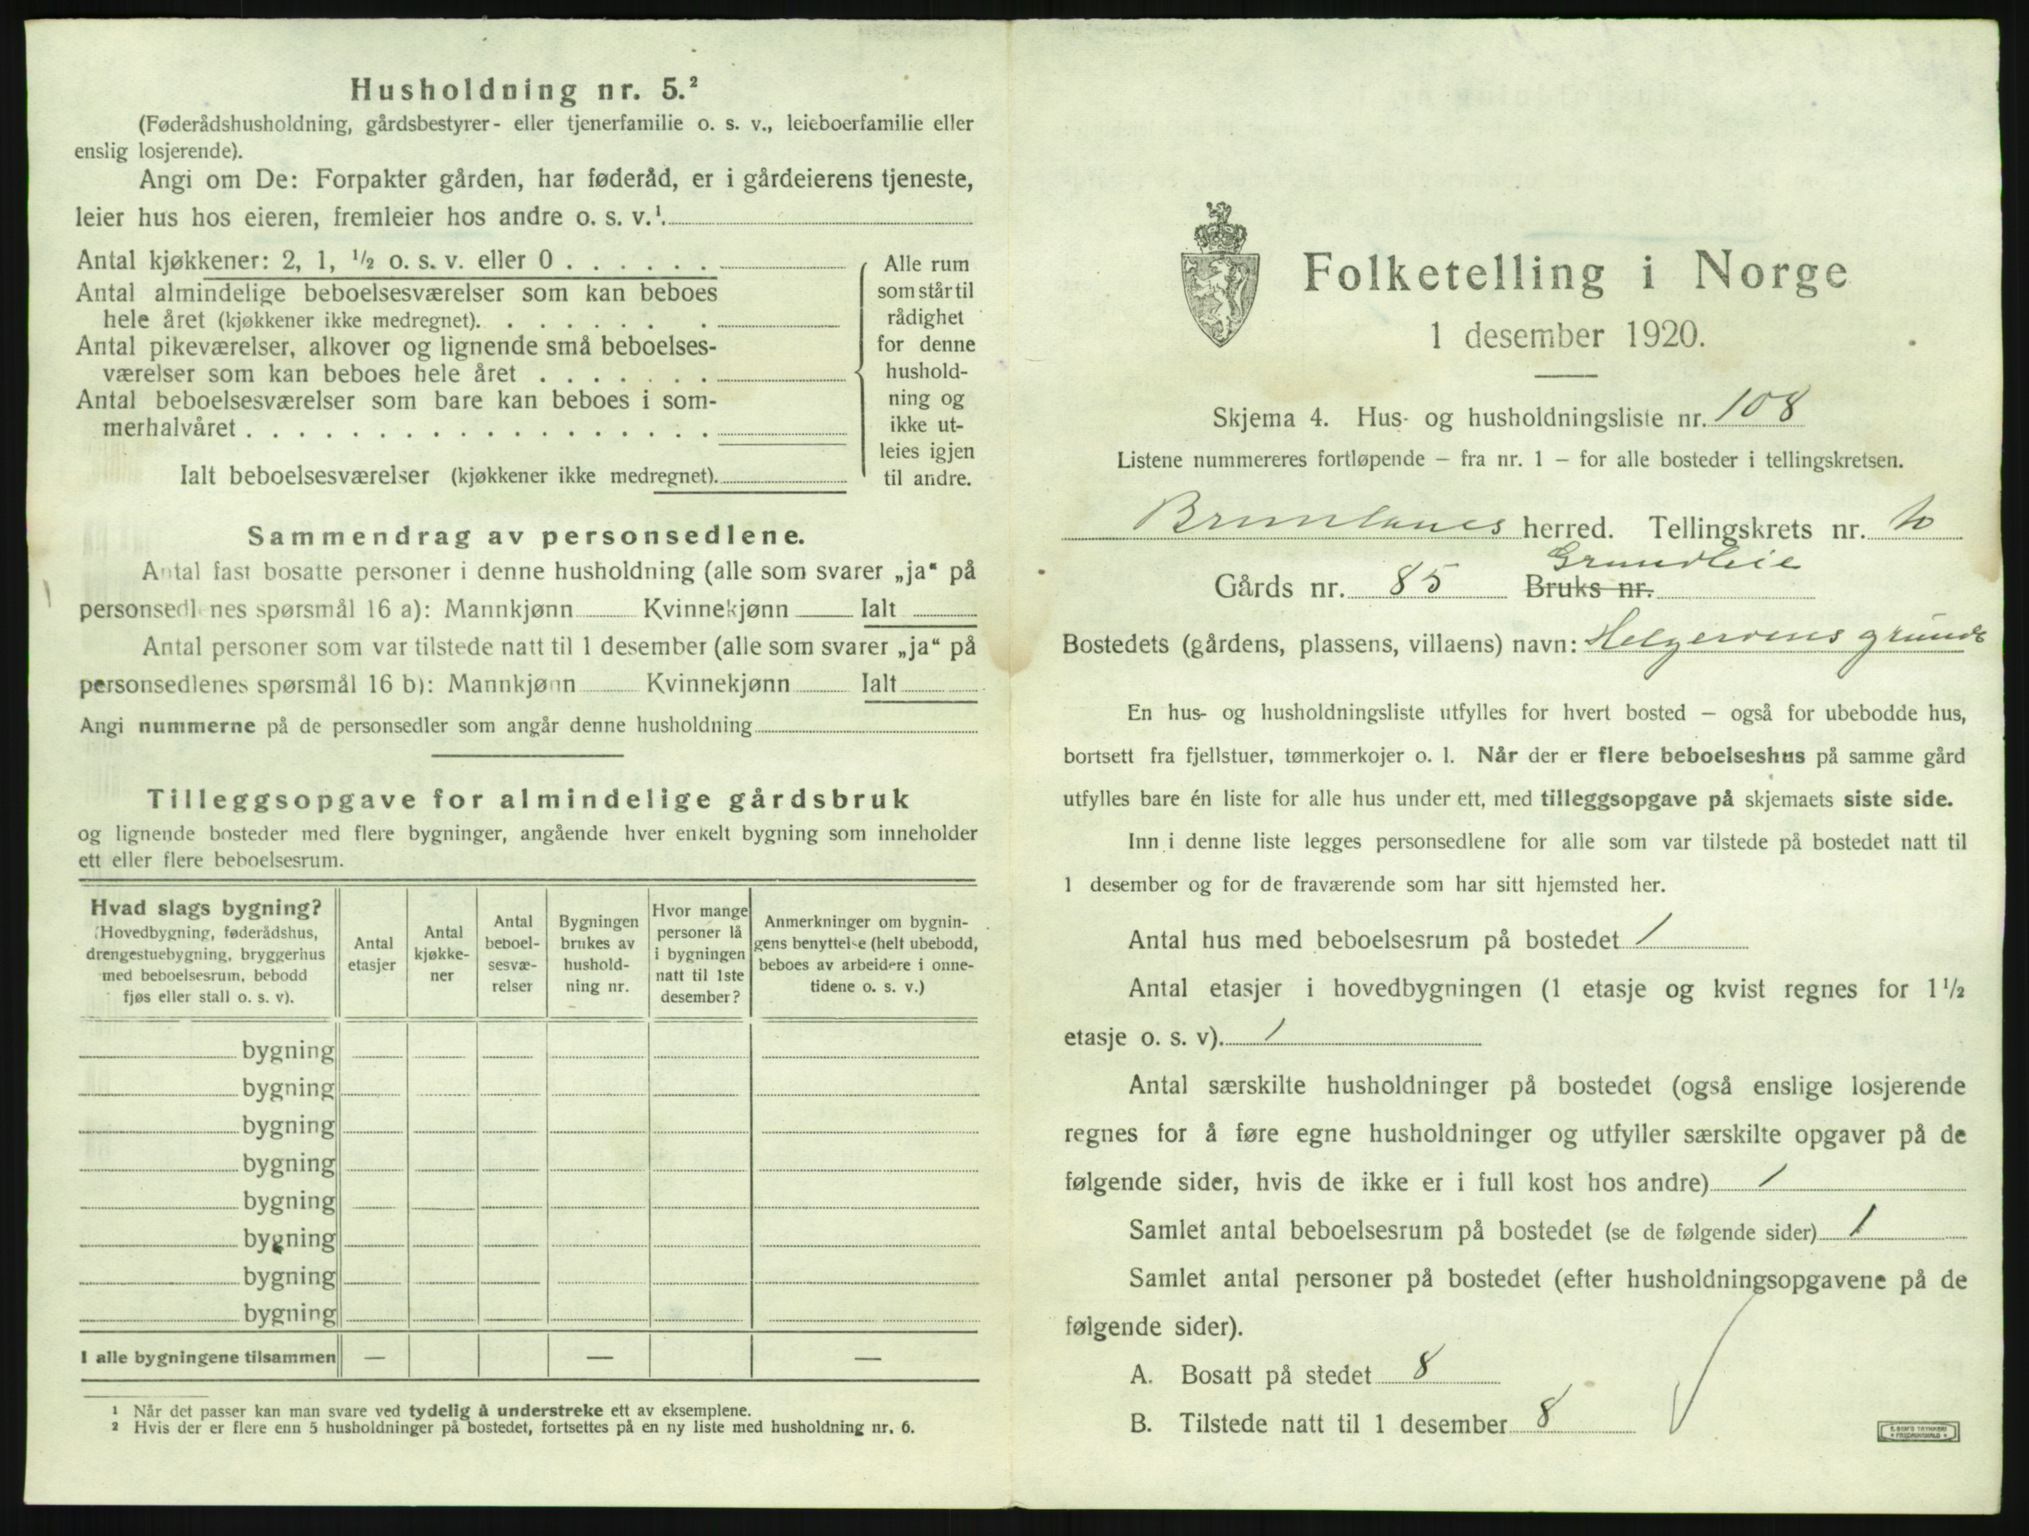 Husholdning nr. 5.²
(Føderådshusholdning, gårdsbestyrer- eller tjenerfamilie o. s. v., leieboerfamilie eller
enslig losjerende).
Angi om De: Forpakter gården, har føderåd, er i gårdeierens tjeneste,
leier hus hos eieren, fremleier hos andre o. s. v.¹.
Antal kjøkkener: 2, 1, ½ o. s. v. eller 0 . . . . . .
Antal almindelige beboelsesværelser som kan beboes
hele året (kjøkkener ikke medregnet). . . . . . . .
Antal pikeværelser, alkover og lignende små beboelses-
værelser som kan beboes hele året . . . . . . .
Antal beboelsesværelser som bare kan beboes i som-
merhalvåret . . . . . . . . . . . . . . . . . .
Ialt beboelsesværelser (kjøkkener ikke medregnet).
Alle rum
som står til
rådighet
for denne
hushold-
ning og
ikke ut-
leies igjen
til andre.
Sammendrag av personsedlene.
Antal fast bosatte personer i denne husholdning (alle som svarer „ja“ på
personsedlenes spørsmål 16 a): Mannkjønn Kvinnekjønn Ialt
Antal personer som var tilstede natt til 1 desember (alle som svarer „ja“ på
personsedlenes spørsmål 16 b): Mannkjønn Kvinnekjønn Ialt
Angi nummerne på de personsedler som angår denne husholdning
Tilleggsopgave for almindelige gårdsbruk
og lignende bosteder med flere bygninger, angående hver enkelt bygning som inneholder
ett eller flere beboelsesrum.
Hvad slags bygning?
(Hovedbygning, føderådshus,
drengestuebygning, bryggerhus
med beboelsesrum, bebodd
fjøs eller stall o. s. v).
Antal
etasjer
Antal
kjøkke-
ner
Antal
beboel-
sesvæ-
relser
Bygningen
brukes av
hushold-
ning nr.
Hvor mange
personer lå
i bygningen
natt til 1ste
desember?
Anmerkninger om bygnin-
gens benyttelse (helt ubebodd,
beboes av arbeidere i onne-
tidene o. s. v.)
bygning
bygning
bygning
bygning
bygning
bygning
bygning
bygning
I alle bygningene tilsammen — — —
¹ Når det passer kan man svare ved tydelig å understreke ett av eksemplene.
² Hvis der er flere enn 5 husholdninger på bostedet, fortsettes på en ny liste med husholdning nr. 6.
Folketelling i Norge
1 desember 1920.
Skjema 4. Hus- og husholdningsliste nr. 108
Listene nummereres fortløpende – fra nr. 1 – for alle bosteder i tellingskretsen.
Brunlanes herred. Tellingskrets nr. 10
Grundleie
Gårds nr. 85 Bruks nr.
Bostedets (gårdens, plassens, villaens) navn: Helgeroens grund
En hus- og husholdningsliste utfylles for hvert bosted – også for ubebodde hus,
bortsett fra fjellstuer, tømmerkojer o. l. Når der er flere beboelseshus på samme gård
utfylles bare én liste for alle hus under ett, med tilleggsopgave på skjemaets siste side.
Inn i denne liste legges personsedlene for alle som var tilstede på bostedet natt til
1 desember og for de fraværende som har sitt hjemsted her.
Antal hus med beboelsesrum på bostedet 1
Antal etasjer i hovedbygningen (1 etasje og kvist regnes for 1 ½
etasje o. s. v). 1
Antal særskilte husholdninger på bostedet (også enslige losjerende
regnes for å føre egne husholdninger og utfyller særskilte opgaver på de
følgende sider, hvis de ikke er i full kost hos andre) 1
Samlet antal beboelsesrum på bostedet (se de følgende sider) 1
Samlet antal personer på bostedet (efter husholdningsopgavene på de
følgende sider).
A. Bosatt på stedet 8
B. Tilstede natt til 1 desember 8